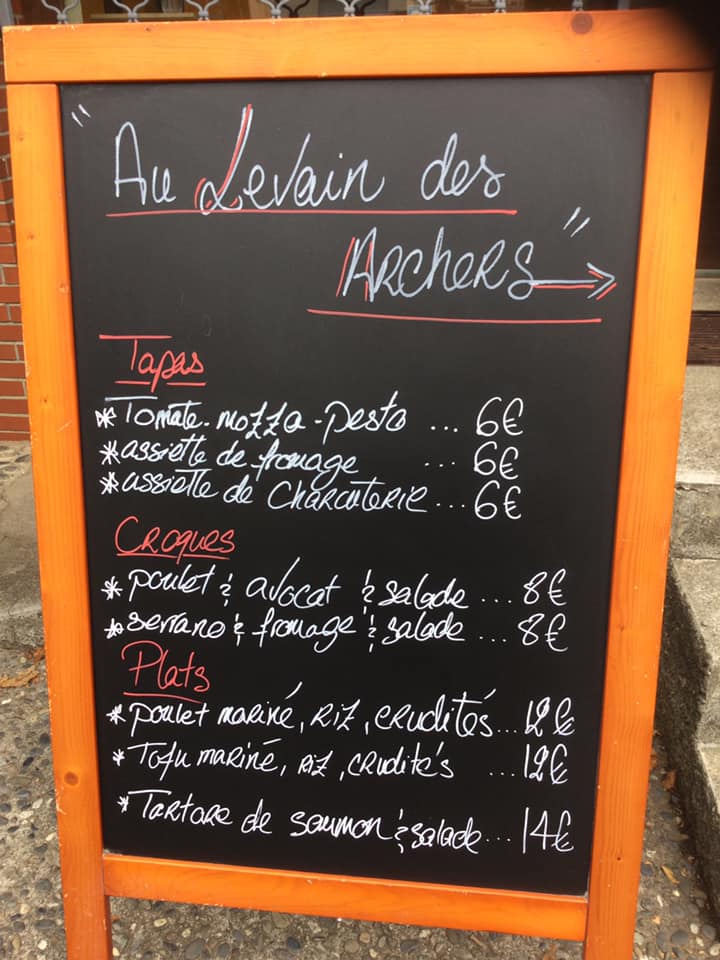 " Au Levain des
Archers "
Tapas
* Tomate-mozza-pesto ... 6€
* assiette de fromage ... 6€
* assiette de charcuterie ... 6€
Croques
* poulet & avocat & salade ... 8€
* serrano & fromage & salade ... 8€
Plats
* poulet mariné, riz, crudités ... 12€
* Tofu mariné, riz, crudités ... 12€
* Tartare de saumon & salade ... 14€